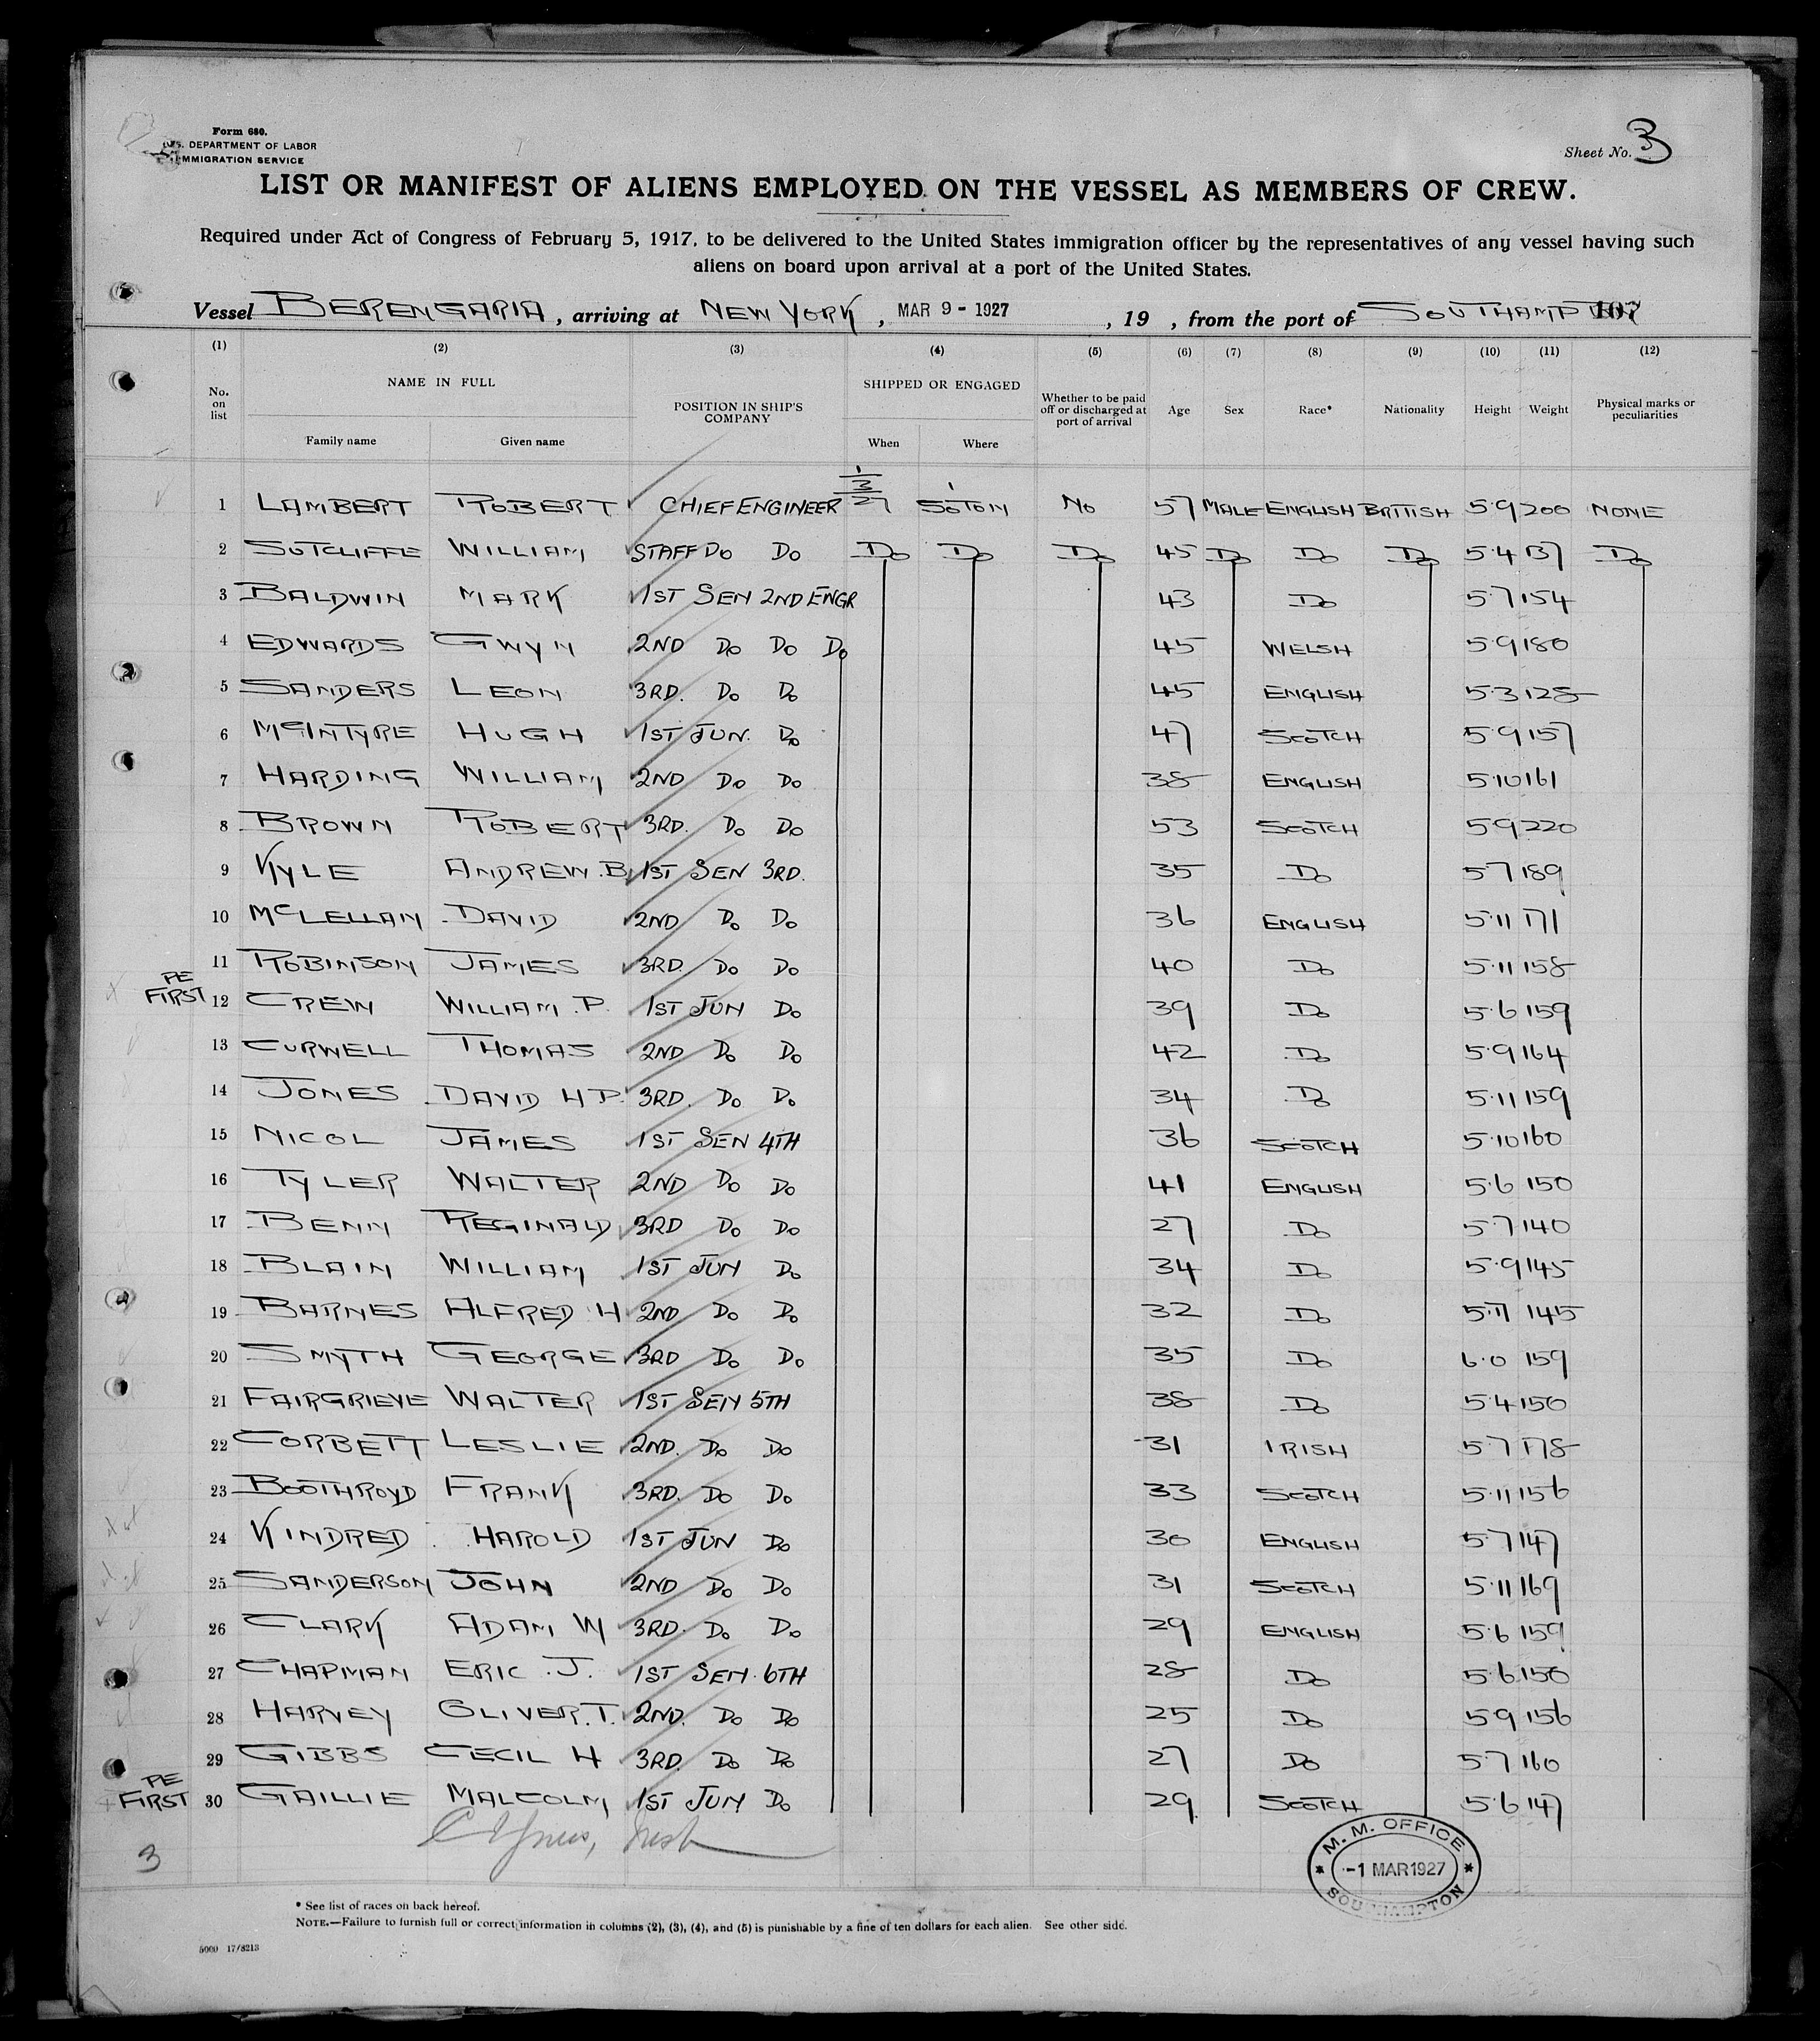 Form 680.
U.S. DEPARTMENT OF LABOR
IMMIGRATION SERVICE
Sheet No. 3
LIST OR MANIFEST OF ALIENS EMPLOYED ON THE VESSEL AS MEMBERS OF CREW.
Required under Act of Congress of February 5, 1917, to be delivered to the United States immigration officer by the representatives of any vessel having such
aliens on board upon arrival at a port of the United States.
Vessel BERENGARIA, arriving at NEW YORK, MAR 9 - 1927, 19 , from the port of SOUTHAMPTON 107
(1) (2) (3) (4) (5) (6) (7) (8) (9) (10) (11) (12)
No. on list NAME IN FULL Family name Given name POSITION IN SHIP'S COMPANY SHIPPED OR ENGAGED When Where Whether to be paid off or discharged at port of arrival Age Sex Race* Nationality Height Weight Physical marks or peculiarities
1 LAMBERT ROBERT CHIEF ENGINEER 1/3/27 SOTON No 57 MALE ENGLISH BRITISH 5·9 200 NONE
2 SUTCLIFFE WILLIAM STAFF Do Do Do Do Do 45 Do Do Do 5·4 137 Do
3 BALDWIN MARK 1ST SEN 2ND ENGR 43 Do 5·7 154
4 EDWARDS GWYN 2ND Do Do Do 45 WELSH 5·9 180
5 SANDERS LEON 3RD. Do Do 45 ENGLISH 5·3 128
6 McINTYRE HUGH 1ST JUN. Do 47 SCOTCH 5·9 157
7 HARDING WILLIAM 2ND Do Do 38 ENGLISH 5·10 161
8 BROWN ROBERT 3RD. Do Do 53 SCOTCH 5·9 220
9 KYLE ANDREW.B. 1ST SEN 3RD. 35 Do 5·7 189
10 McLELLAN DAVID 2ND Do Do 36 ENGLISH 5·11 171
11 ROBINSON JAMES 3RD. Do Do 40 Do 5·11 158
PE FIRST 12 CREW WILLIAM.P. 1ST JUN Do 39 Do 5·6 159
13 CURWELL THOMAS 2ND Do Do 42 Do 5·9 164
14 JONES DAVID H P. 3RD. Do Do 34 Do 5·11 159
15 NICOL JAMES 1ST SEN 4TH 36 SCOTCH 5·10 160
16 TYLER WALTER 2ND Do Do 41 ENGLISH 5·6 150
17 BENN REGINALD 3RD Do Do 27 Do 5·7 140
18 BLAIN WILLIAM 1ST JUN Do 34 Do 5·9 145
19 BARNES ALFRED H 2ND Do Do 32 Do 5·7 145
20 SMYTH GEORGE 3RD Do Do 35 Do 6·0 159
21 FAIRGRIEVE WALTER 1ST SEN 5TH 38 Do 5·4 150
22 CORBETT LESLIE 2ND. Do Do 31 IRISH 5·7 178
23 BOOTHROYD FRANK 3RD. Do Do 33 SCOTCH 5·11 156
24 KINDRED HAROLD 1ST JUN Do 30 ENGLISH 5·7 147
25 SANDERSON JOHN 2ND Do Do 31 SCOTCH 5·11 169
26 CLARK ADAM W 3RD. Do Do 29 ENGLISH 5·6 159
27 CHAPMAN ERIC.J. 1ST SEN. 6TH 28 Do 5·6 150
28 HARVEY OLIVER.T. 2ND. Do Do 25 Do 5·9 156
29 GIBBS CECIL H 3RD. Do Do 27 Do 5·7 160
PE FIRST 30 GAILLIE MALCOLM 1ST JUN Do 29 SCOTCH 5·6 147
3
M. M. OFFICE
-1 MAR 1927
SOUTHAMPTON
* See list of races on back hereof.
NOTE.—Failure to furnish full or correct information in columns (2), (3), (4), and (5) is punishable by a fine of ten dollars for each alien. See other side.
5000 17/8213